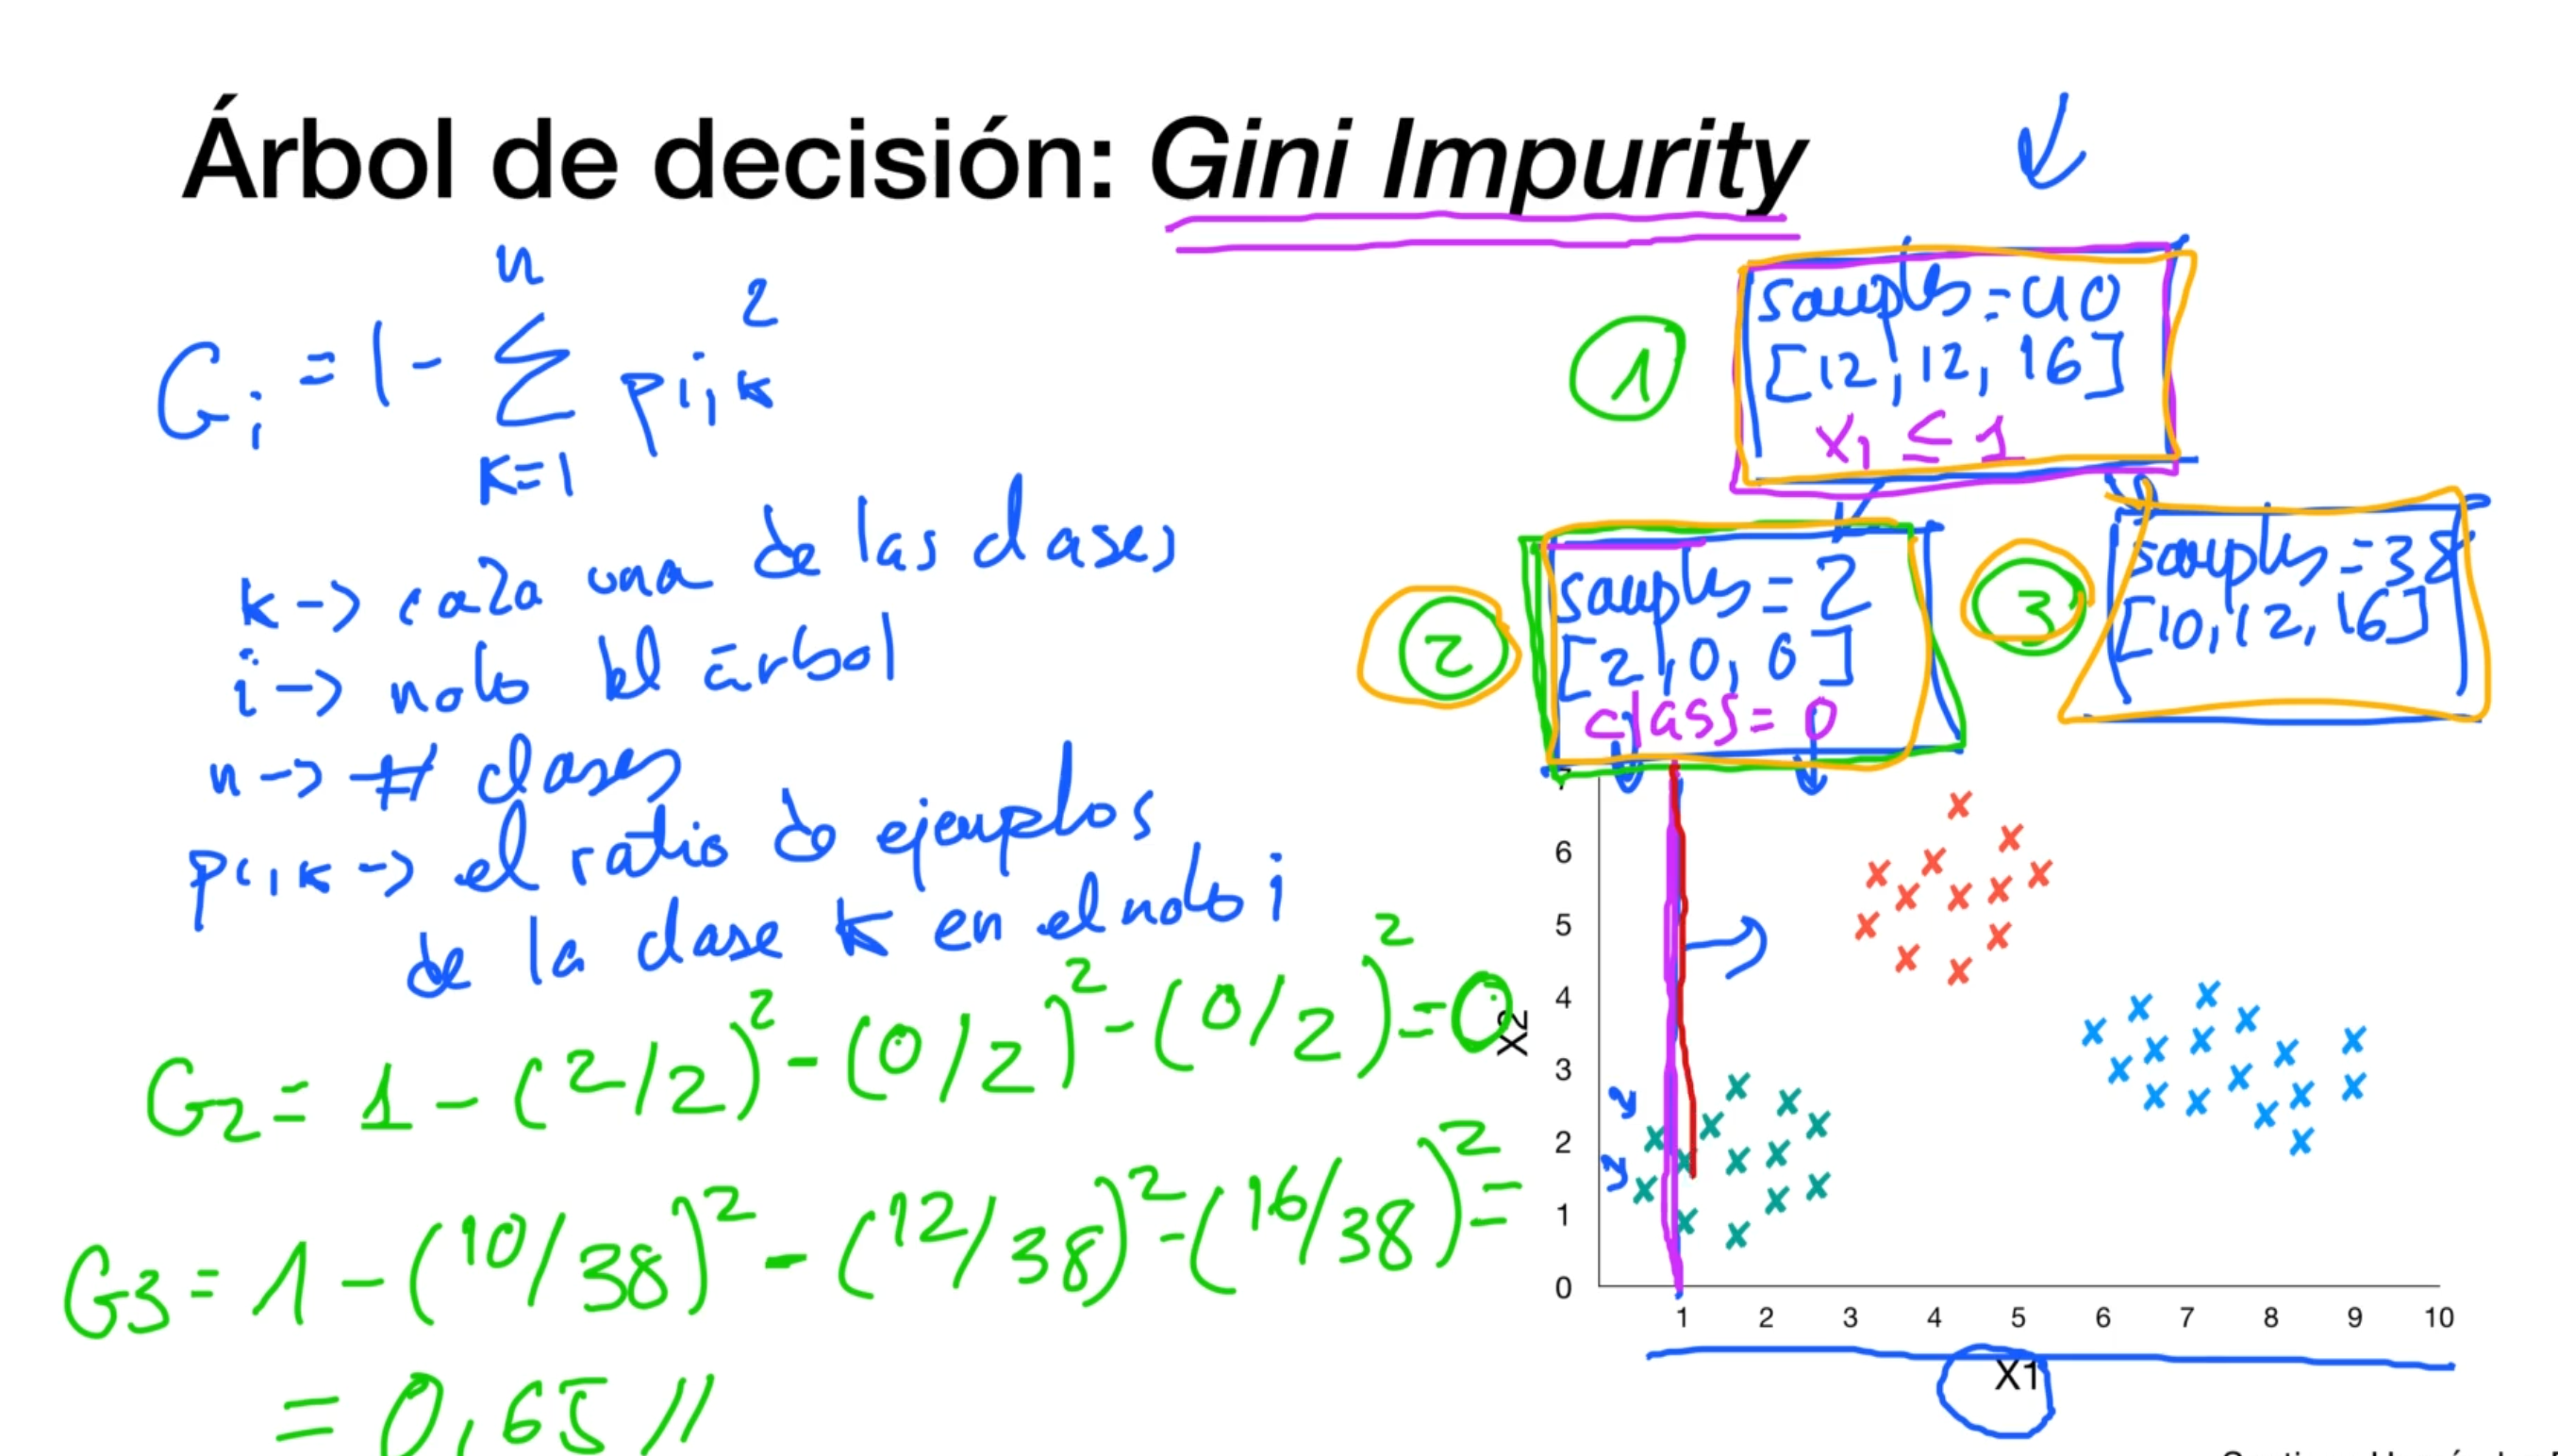 Árbol de decisión: Gini Impurity
Gi = 1 - Σ pi,k²
n
k=1
k -> cada una de las clases
i -> nodo del árbol
n -> # clases
pi,k -> el ratio de ejemplos
de la clase k en el nodo i
G2 = 1 - (2/2)² - (0/2)² - (0/2)² = 0
G3 = 1 - (10/38)² - (12/38)² - (16/38)² =
= 0,65 //
1
samples = 40
[12, 12, 16]
x1 ≤ 1
2
samples = 2
[2, 0, 0]
class = 0
3
samples = 38
[10, 12, 16]
X2
7
6
5
4
3
2
1
0
1 2 3 4 5 6 7 8 9 10
X1